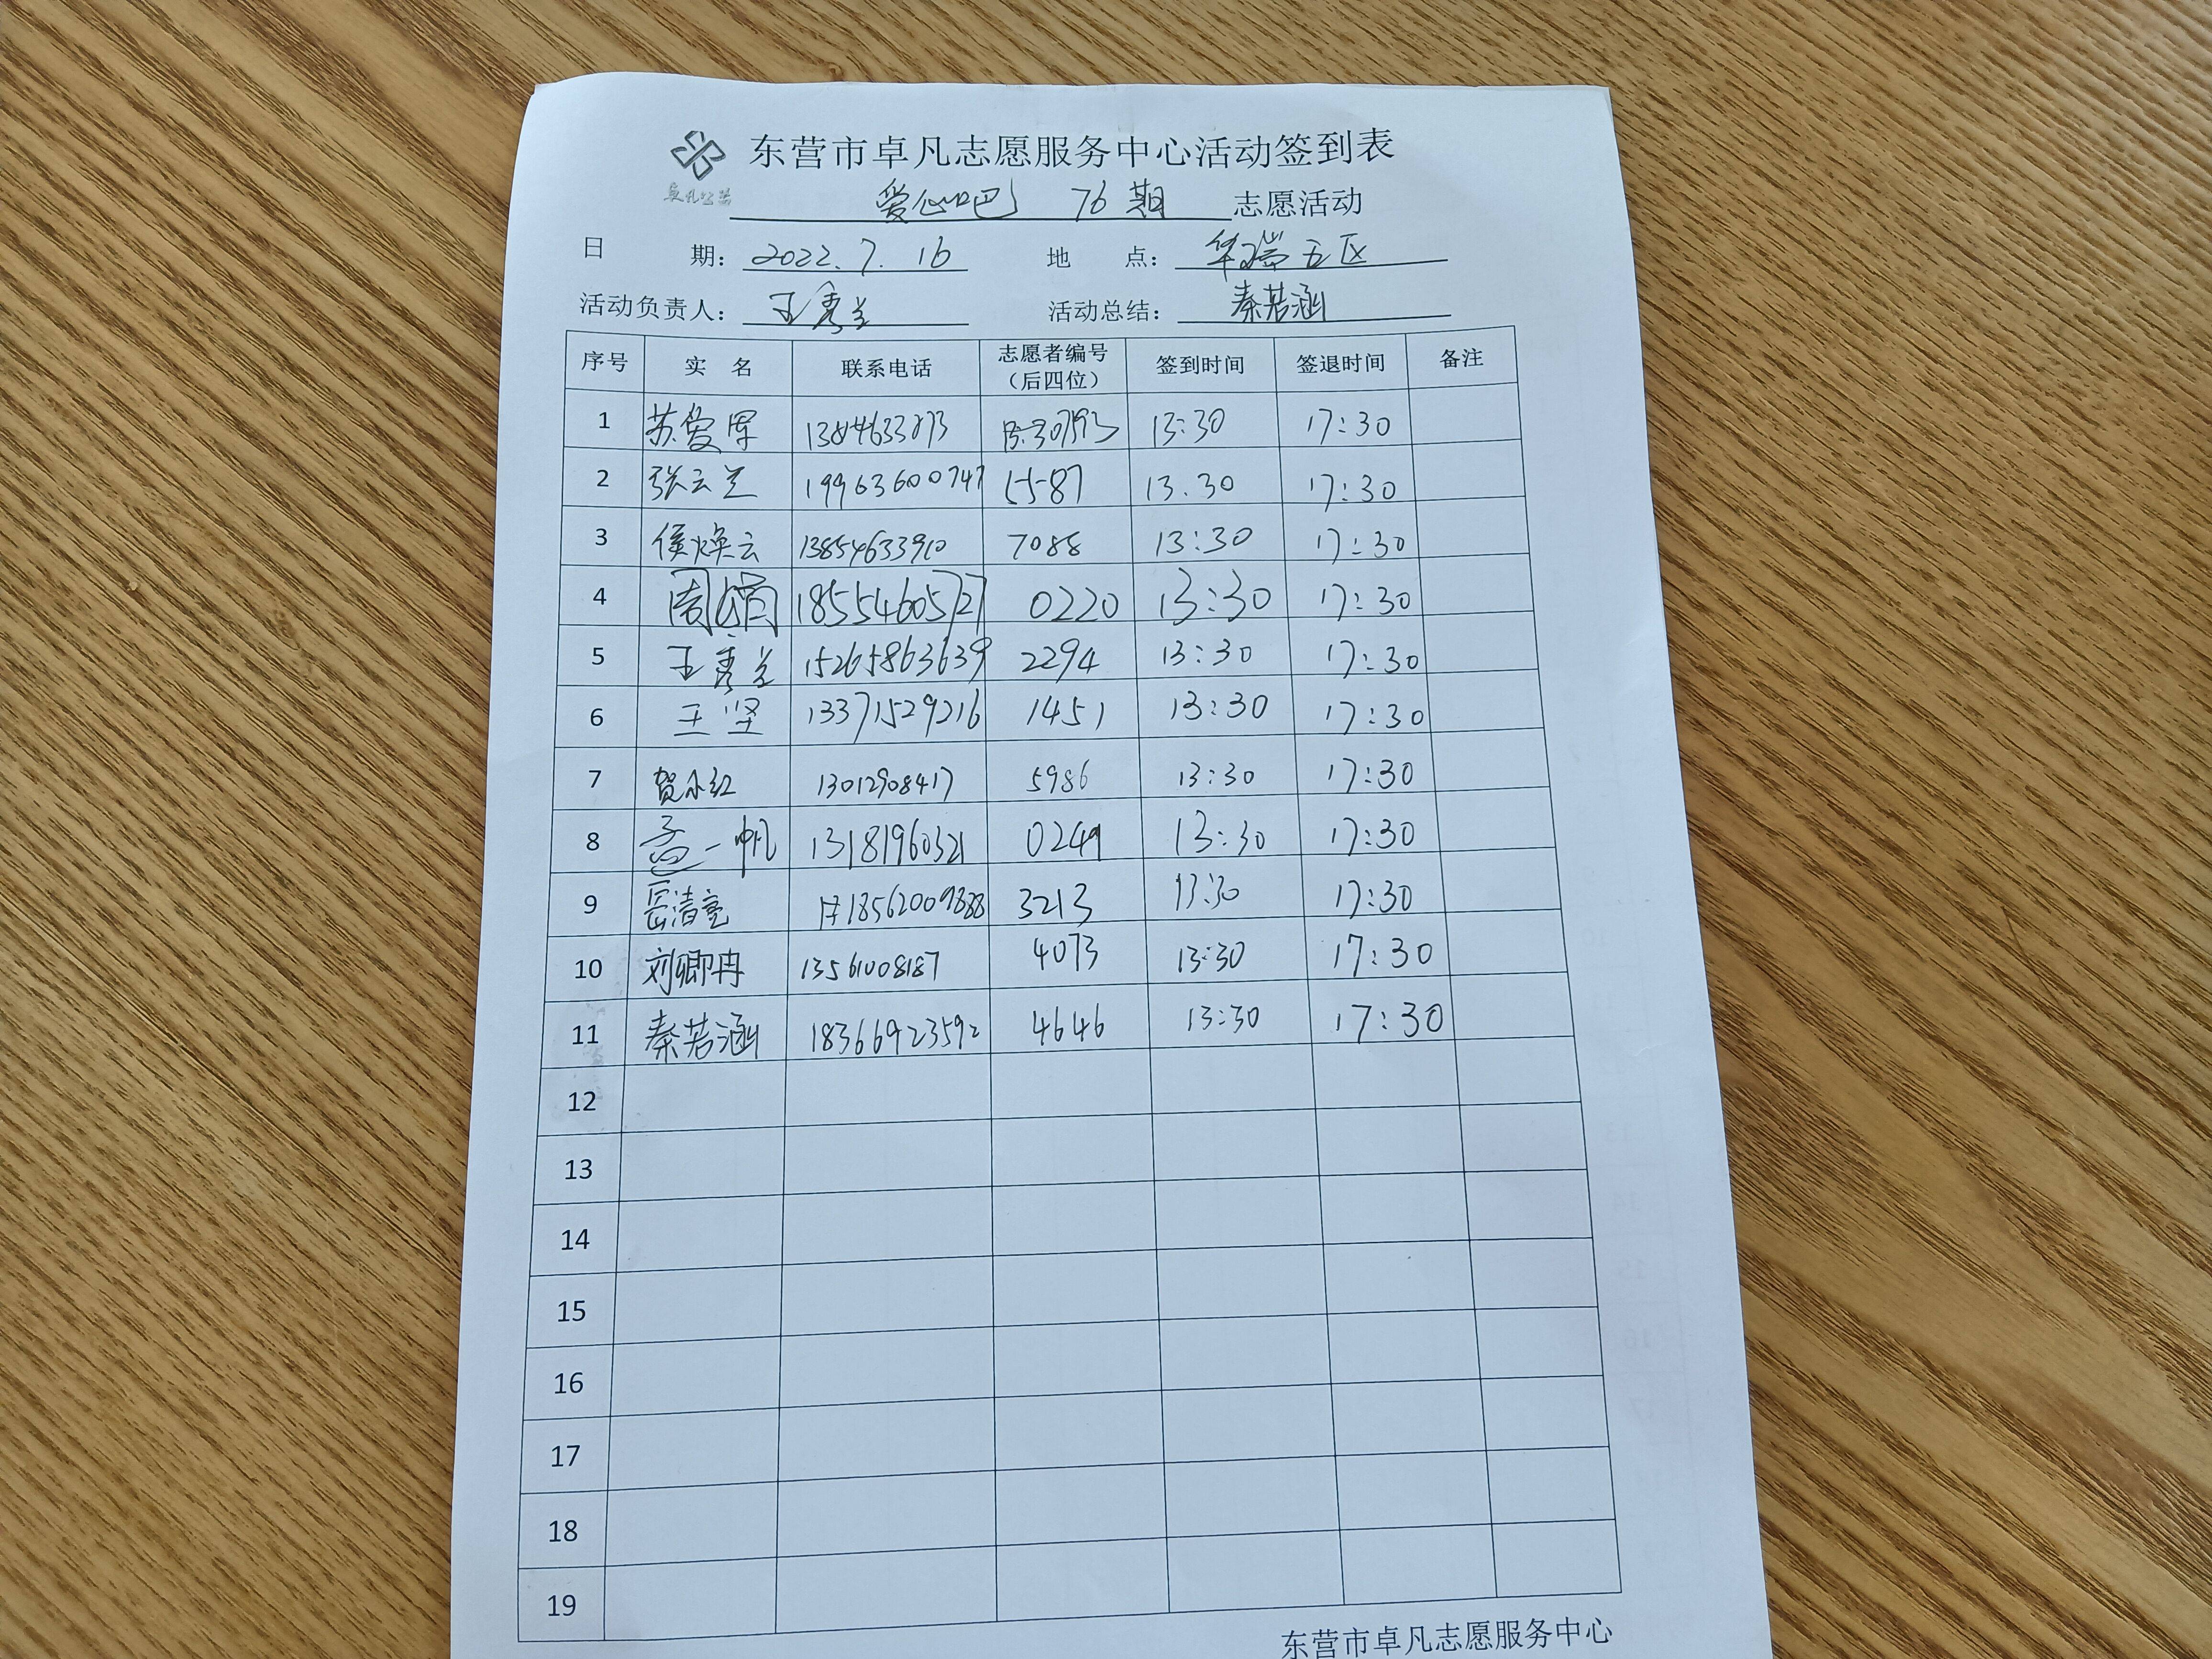 东营市卓凡志愿服务中心活动签到表
卓凡公益
爱心吧 76期 志愿活动
日 期: 2022.7.16 地 点: 华瑞五区
活动负责人: 王秀兰 活动总结: 秦若涵
序号 实 名 联系电话 志愿者编号（后四位） 签到时间 签退时间 备注
1 苏爱军 13:30 17:30
2 张云兰 19963600747 5587 13.30 17:30
3 侯焕云 13854633910 7088 13:30 17:30
4 周娟 18554605727 0220 13:30 17:30
5 王秀兰 15265863639 2294 13:30 17:30
6 王坚 13371529216 1451 13:30 17:30
7 贺小红 13012908417 5986 13:30 17:30
8 孟一帆 13181960321 0249 13:30 17:30
9 岳清亮 18562009888 3213 13:30 17:30
10 刘卿冉 13561008187 4073 13:30 17:30
11 秦若涵 18366923592 4646 13:30 17:30
12
13
14
15
16
17
18
19
东营市卓凡志愿服务中心